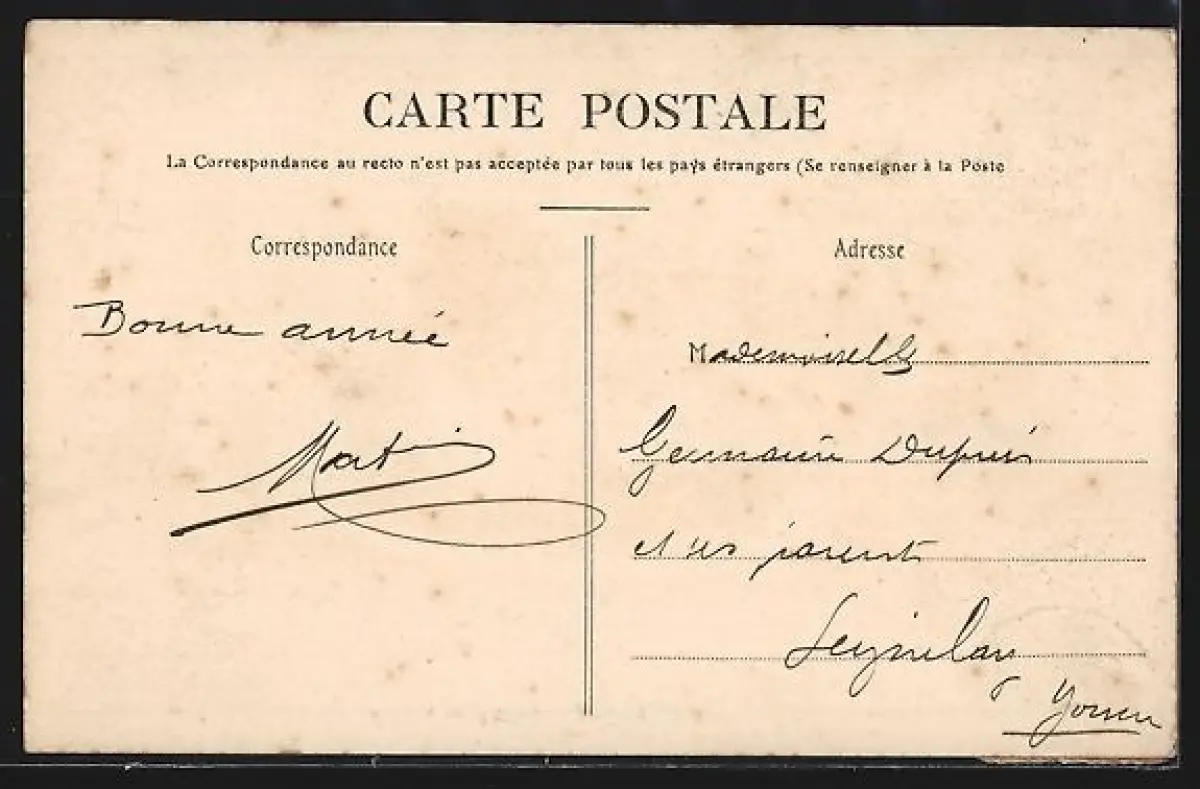 CARTE POSTALE
La Correspondance au recto n'est pas acceptée par tous les pays étrangers (Se renseigner à la Poste
Correspondance
Adresse
Bonne année
Mademoiselle
Germaine Dupuis
et ses parents
Seignelay
Yonne